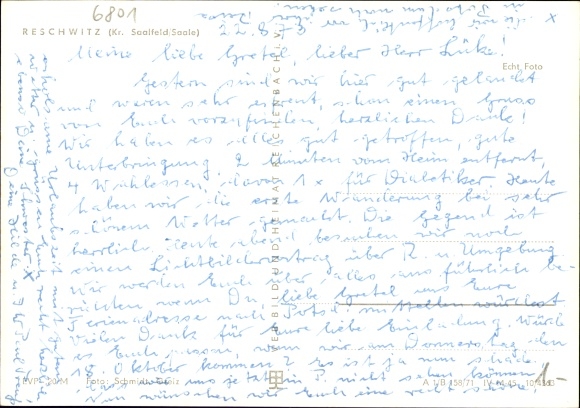 6801
22.8.73
RESCHWITZ (Kr. Saalfeld/Saale)
Echt Foto
Meine liebe Gretel, lieber Herr Lüke!
Gestern sind wir hier gut gelandet
und waren sehr erfreut, schon einen Gruss
von Euch vorzufinden, herzlichen Dank!
Wir haben es alles gut getroffen, gute
Unterbringung, 2 Minuten vom Heim entfernt,
4 Wahlessen, davon 1x für Diabetiker. Heute
haben wir die erste Wanderung bei sehr
schönem Wetter gemacht. Die Gegend ist
herrlich, heute abend besuchen wir noch
einen Lichtbildervortrag über R. u. Umgebung
Wir werden Euch über alles ausführlich be-
richten wenn Du, liebe Gretel uns Eure
Ferienadresse nach Potsd. mitteilen würdest
Vielen Dank für Eure liebe Einladung. Würde
es Euch passen, wenn wir am Donnerstag, den
18. Oktober kommen? Es ist ja nun schade,
dass wir uns jetzt in P. nicht sehen können
Nun wünschen wir Euch eine recht schöne
VEB BILD UND HEIMAT REICHENBACH I. V.
Foto: Schmidt
A 1/B 158/71 IV-14-45
1-